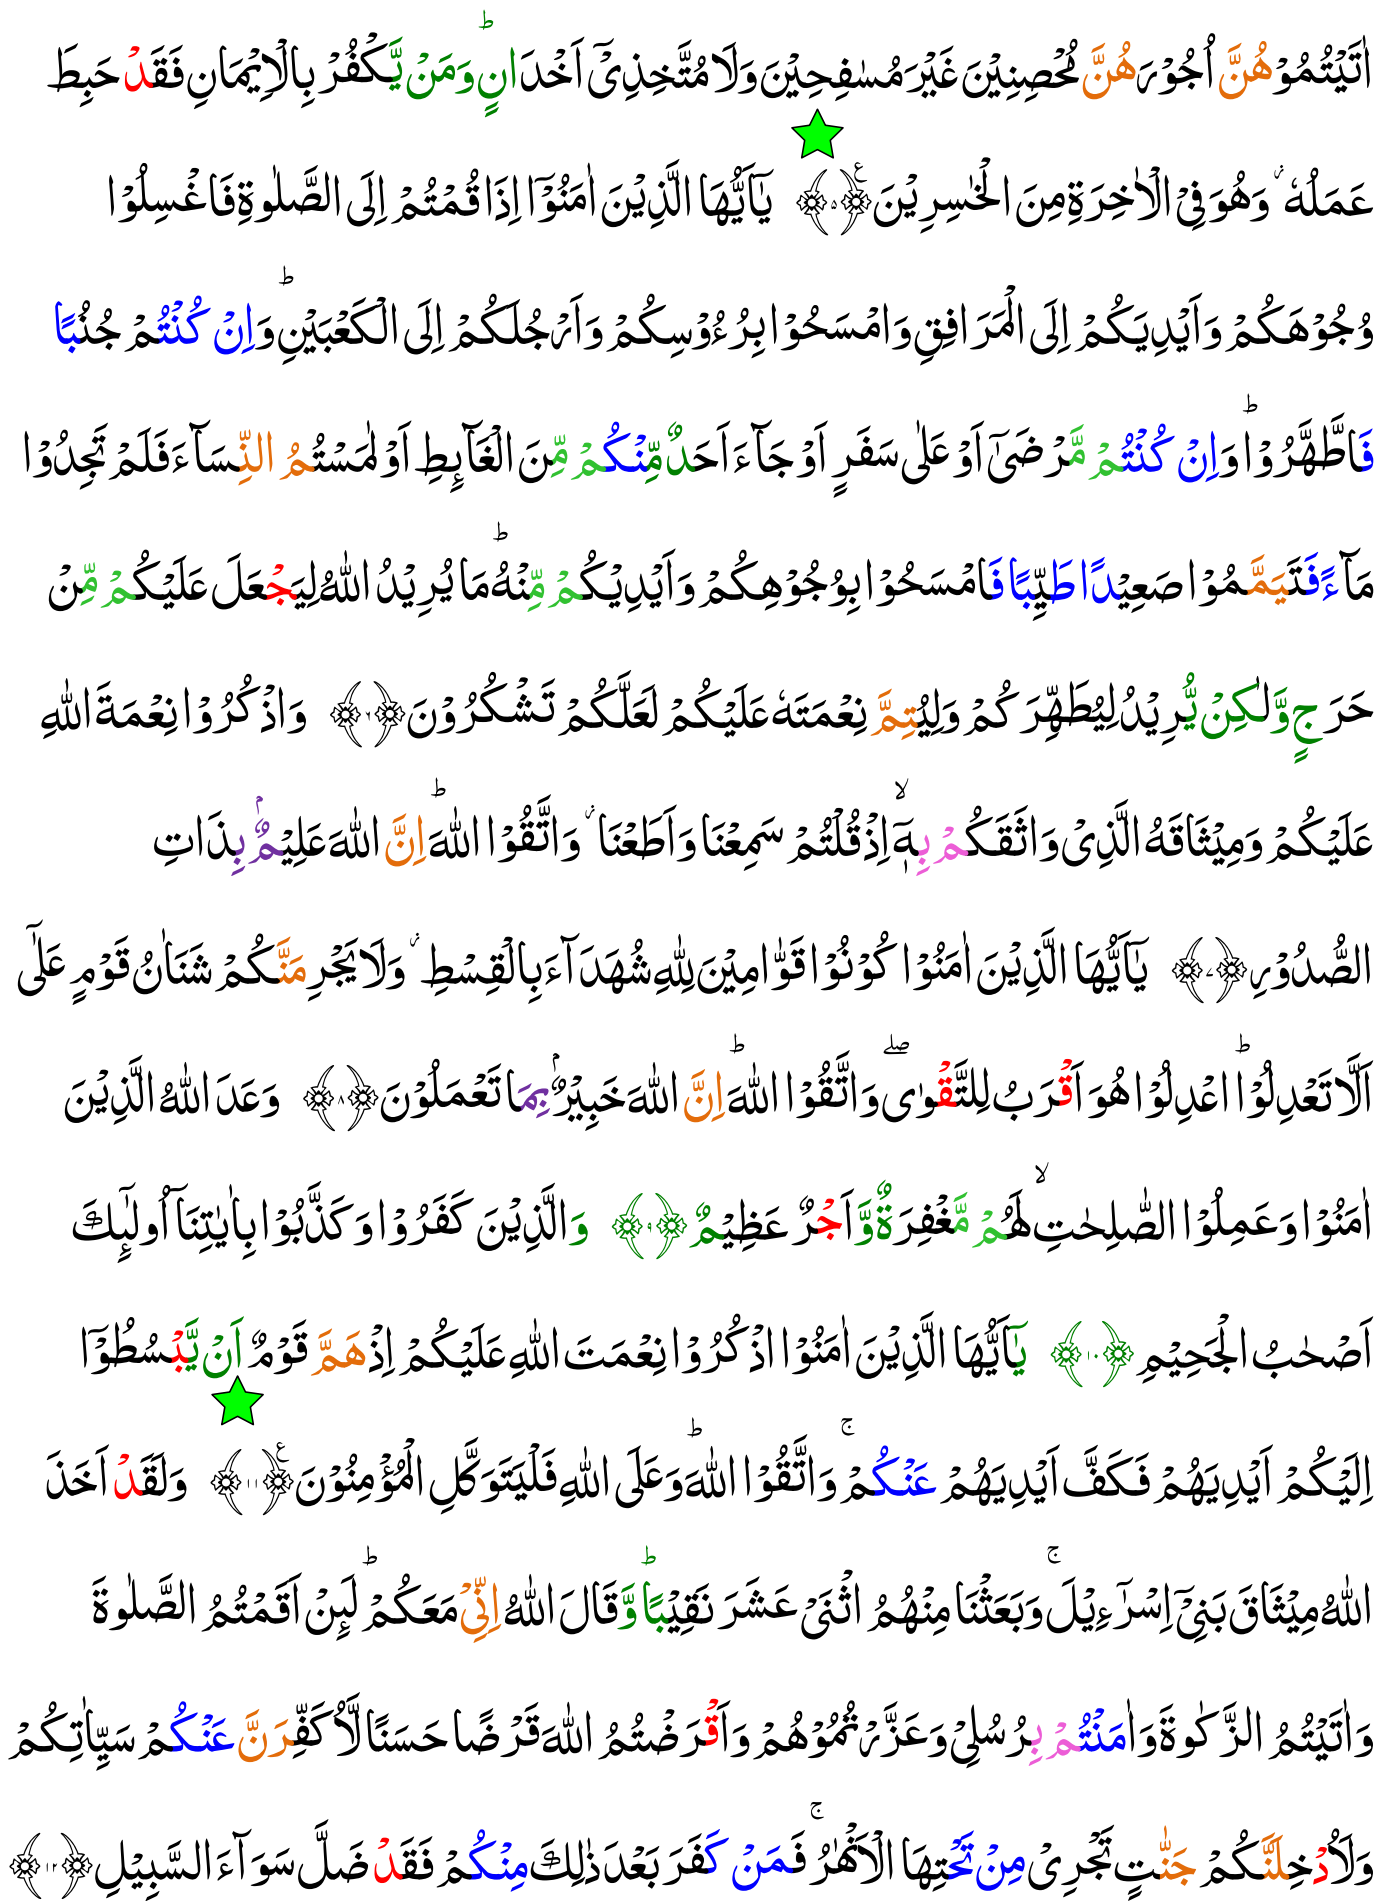 اٰتَيْتُمُوْهُنَّ اُجُوْرَهُنَّ مُحْصِنِيْنَ غَيْرَ مُسٰفِحِيْنَ وَلَا مُتَّخِذِىْۤ اَخْدَانٍؕ وَمَنْ يَّكْفُرْ بِالْاِيْمَانِ فَقَدْ حَبِطَ
عَمَلُهٗ ۫ وَهُوَ فِىْ الْاٰخِرَةِ مِنَ الْخٰسِرِيْنَ ﴿۵﴾ۧ يٰۤاَيُّهَا الَّذِيْنَ اٰمَنُوْۤا اِذَا قُمْتُمْ اِلَى الصَّلٰوةِ فَاغْسِلُوْا
وُجُوْهَكُمْ وَاَيْدِيَكُمْ اِلَى الْمَرَافِقِ وَامْسَحُوْا بِرُءُوْسِكُمْ وَاَرْجُلَكُمْ اِلَى الْكَعْبَيْنِؕ وَاِنْ كُنْتُمْ جُنُبًا
فَاطَّهَّرُوْاؕ وَاِنْ كُنْتُمْ مَّرْضَىٰۤ اَوْ عَلٰى سَفَرٍ اَوْ جَآءَ اَحَدٌ مِّنْكُمْ مِّنَ الْغَآٮِٕطِ اَوْ لٰمَسْتُمُ النِّسَآءَ فَلَمْ تَجِدُوْا
مَآءً فَتَيَمَّمُوْا صَعِيْدًا طَيِّبًا فَامْسَحُوْا بِوُجُوْهِكُمْ وَاَيْدِيْكُمْ مِّنْهُؕ مَا يُرِيْدُ اللّٰهُ لِيَجْعَلَ عَلَيْكُمْ مِّنْ
حَرَجٍ وَّلٰكِنْ يُّرِيْدُ لِيُطَهِّرَكُمْ وَلِيُتِمَّ نِعْمَتَهٗ عَلَيْكُمْ لَعَلَّكُمْ تَشْكُرُوْنَ ﴿۶﴾ وَاذْكُرُوْا نِعْمَةَ اللّٰهِ
عَلَيْكُمْ وَمِيْثَاقَهُ الَّذِىْ وَاثَقَكُمْ بِهٖۤۙ اِذْ قُلْتُمْ سَمِعْنَا وَاَطَعْنَا ۫ وَاتَّقُوْا اللّٰهَؕ اِنَّ اللّٰهَ عَلِيْمٌۢ بِذَاتِ
الصُّدُوْرِ ﴿۷﴾ يٰۤاَيُّهَا الَّذِيْنَ اٰمَنُوْا كُوْنُوْا قَوّٰامِيْنَ لِلّٰهِ شُهَدَآءَ بِالْقِسْطِ ۫ وَلَا يَجْرِمَنَّكُمْ شَنَاٰنُ قَوْمٍ عَلٰٓى
اَلَّا تَعْدِلُوْاؕ اعْدِلُوْا هُوَ اَقْرَبُ لِلتَّقْوٰىۖ وَاتَّقُوْا اللّٰهَؕ اِنَّ اللّٰهَ خَبِيْرٌۢ بِمَا تَعْمَلُوْنَ ﴿۸﴾ وَعَدَ اللّٰهُ الَّذِيْنَ
اٰمَنُوْا وَعَمِلُوْا الصّٰلِحٰتِۙ لَهُمْ مَّغْفِرَةٌ وَّاَجْرٌ عَظِيْمٌ ﴿۹﴾ وَالَّذِيْنَ كَفَرُوْا وَكَذَّبُوْا بِاٰيٰتِنَاۤ اُولٰٓٮِٕكَ
اَصْحٰبُ الْجَحِيْمِ ﴿۱۰﴾ يٰۤاَيُّهَا الَّذِيْنَ اٰمَنُوْا اذْكُرُوْا نِعْمَتَ اللّٰهِ عَلَيْكُمْ اِذْ هَمَّ قَوْمٌ اَنْ يَّبْسُطُوْۤا
اِلَيْكُمْ اَيْدِيَهُمْ فَكَفَّ اَيْدِيَهُمْ عَنْكُمْۚ وَاتَّقُوْا اللّٰهَؕ وَعَلَى اللّٰهِ فَلْيَتَوَكَّلِ الْمُؤْمِنُوْنَ ﴿۱۱﴾ۧ وَلَقَدْ اَخَذَ
اللّٰهُ مِيْثَاقَ بَنِىْۤ اِسْرٰٓءِيْلَۚ وَبَعَثْنَا مِنْهُمُ اثْنَىْ عَشَرَ نَقِيْبًاؕ وَّقَالَ اللّٰهُ اِنِّىْ مَعَكُمْؕ لَٮِٕنْ اَقَمْتُمُ الصَّلٰوةَ
وَاٰتَيْتُمُ الزَّكٰوةَ وَاٰمَنْتُمْ بِرُسُلِىْ وَعَزَّرْتُمُوْهُمْ وَاَقْرَضْتُمُ اللّٰهَ قَرْضًا حَسَنًا لَّاُكَفِّرَنَّ عَنْكُمْ سَيِّاٰتِكُمْ
وَلَاُدْخِلَنَّكُمْ جَنّٰتٍ تَجْرِىْ مِنْ تَحْتِهَا الْاَنْهٰرُۚ فَمَنْ كَفَرَ بَعْدَ ذٰلِكَ مِنْكُمْ فَقَدْ ضَلَّ سَوَآءَ السَّبِيْلِ ﴿۱۲﴾